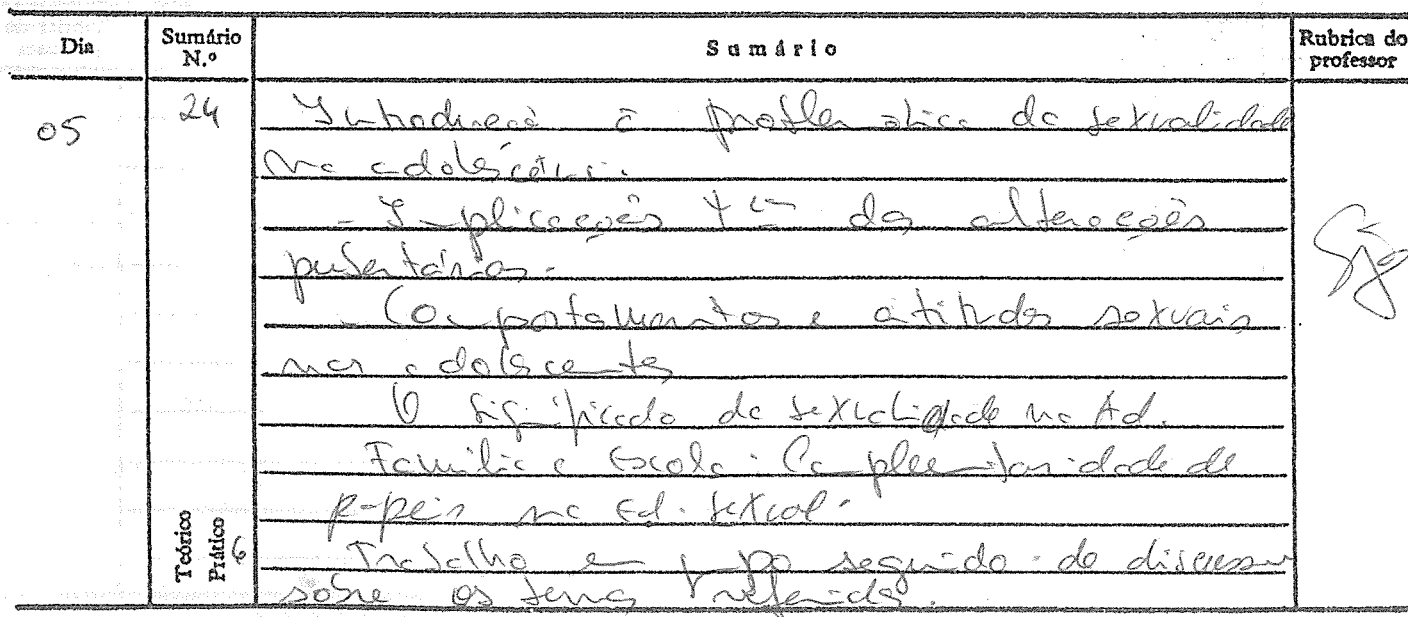 Dia Sumário N.º Sumário Rubrica do professor
05 24 Introdução à problemática da sexualidade
na adolescência.
- Implicações das alterações
pubertárias.
- Comportamentos e atitudes sexuais
nos adolescentes
O significado da sexualidade na Ad.
Família e Escola: Complementaridade de
papéis na Ed. sexual.
Teórico Prático 6 Trabalho em grupo seguido de discussão
sobre os temas referidos.